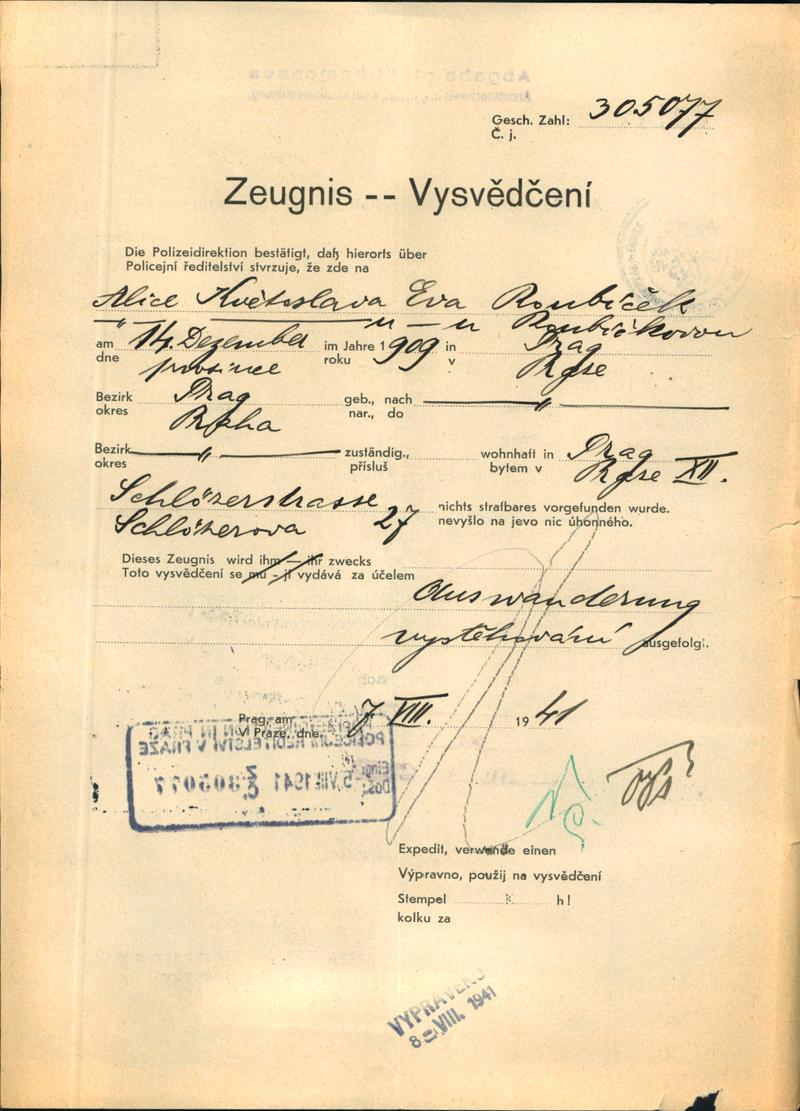 Gesch. Zahl: 305077
Č. j.
Zeugnis -- Vysvědčení
Die Polizeidirektion bestätigt, daß hierorts über
Policejní ředitelství stvrzuje, že zde na
Alice Květoslava Eva Roubíček
" — " — " Roubíčkovou
am 14. Dezember im Jahre 1909 in Prag
dne prosince roku v Praze
Bezirk Prag geb., nach — " —
okres Praha nar., do
Bezirk — " — zuständig., wohnhaft in Prag
okres přísluš bytem v Praze XII.
Schlözerstrasse nichts strafbares vorgefunden wurde.
Schlözerova 27 nevyšlo na jevo nic úhonného.
Dieses Zeugnis wird ihm — ihr zwecks
Toto vysvědčení se mu - jí vydává za účelem
Auswanderung
vystěhování ausgefolgt.
Prag, am 7 VIII. 1941
V Praze, dne
POLICEJNÍ ŘEDITELSTVÍ V PRAZE
Eing.: 5. VIII. 1941 305077
Došl.:
Expedit, verwende einen
Výpravno, použij na vysvědčení
Stempel k h!
kolku za
VYPRAVENO
8 VIII. 1941